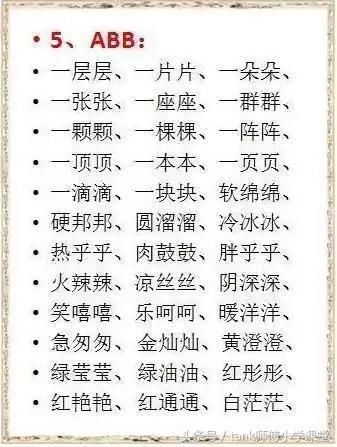 • 5、ABB：
• 一层层、一片片、一朵朵、
• 一张张、一座座、一群群、
• 一颗颗、一棵棵、一阵阵、
• 一顶顶、一本本、一页页、
• 一滴滴、一块块、软绵绵、
• 硬邦邦、圆溜溜、冷冰冰、
• 热乎乎、肉鼓鼓、胖乎乎、
• 火辣辣、凉丝丝、阴深深、
• 笑嘻嘻、乐呵呵、暖洋洋、
• 急匆匆、金灿灿、黄澄澄、
• 绿莹莹、绿油油、红彤彤、
• 红艳艳、红通通、白茫茫、
头条号/tank师傅小学课堂